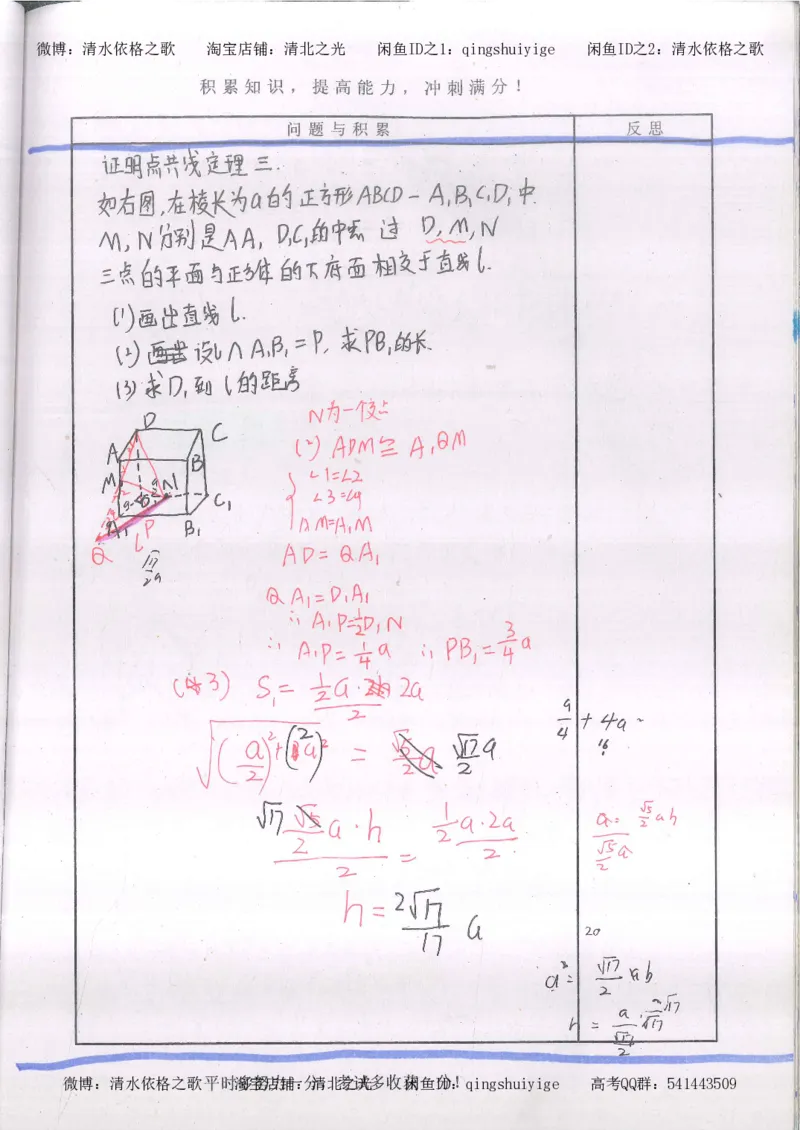 微博：清水依格之歌 淘宝店铺：清北之光 闲鱼ID之1：qingshuiyige 闲鱼ID之2：清水依格之歌
积累知识，提高能力，冲刺满分！
问题与积累 反思
证明点共线定理三.
如右图,在棱长为a的正方形ABCD-A₁B₁C₁D₁中
M,N分别是AA₁ D₁C₁的中点 过 D,M,N
三点的平面与正方体的下底面相交于直线l.
(1)画出直线l.
(2) 设l∩A₁B₁=P, 求PB₁的长.
(3)求D₁到l的距离
D
C
A
B
M
N
C₁
A₁
P
B₁
Q
l
√17/2a
N为一个交点
(2) ADM≌A₁QM
∠1=∠2
∠3=∠4
AM=A₁M
AD=QA₁
QA₁=D₁A₁
∴A₁P=1/2D₁N
∴A₁P=1/4a ∴PB₁=3/4a
(3) S₁=(1/2a·2a)/2
a/4+4a
√((a/2)²+(2a)²) = √17/2a
(√17/2a·h)/2 = (1/2a·2a)/2
h=2√17/17 a
20
微博：清水依格之歌 淘宝店铺：清北之光 闲鱼ID：qingshuiyige 高考QQ群：541443509